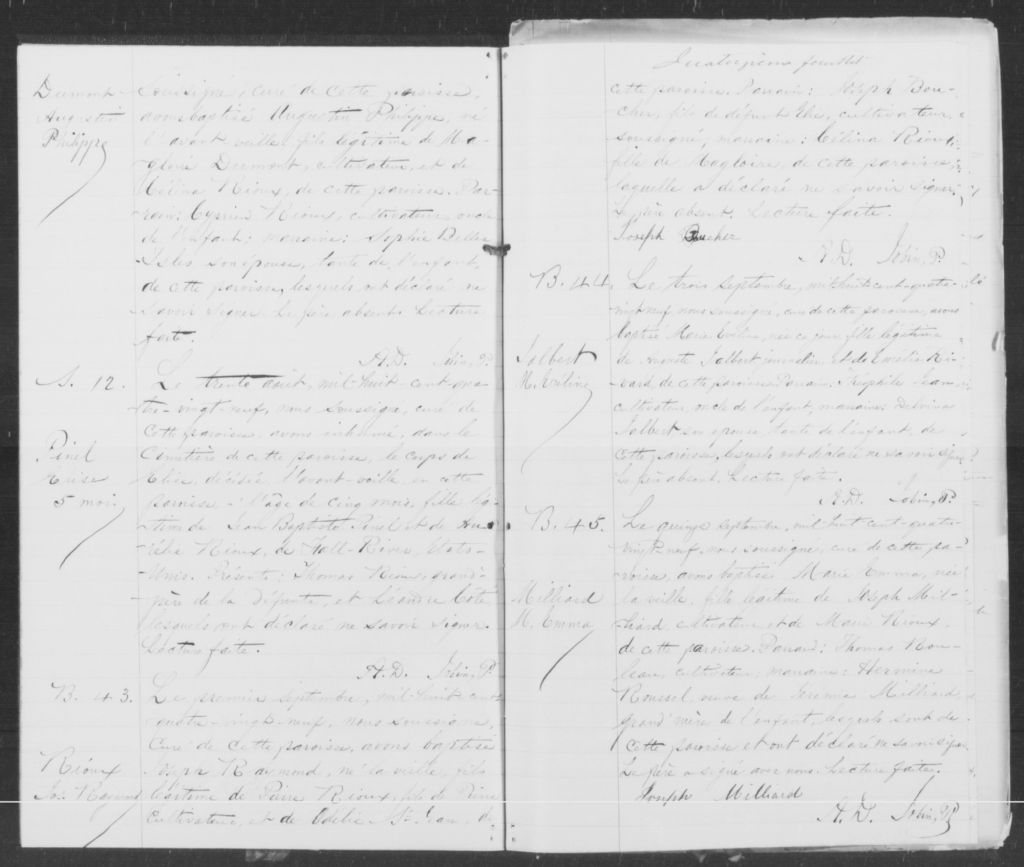 Dumont
Augustin
Philippe
soussigné, curé de cette paroisse,
avons baptisé Augustin Philippe, né
l'avant veille, fils légitime de Ma-
gloire Dumont, cultivateur, et de
Célina Rioux, de cette paroisse. Par-
rain: Cyprien Rioux, cultivateur, oncle
de l'enfant; marraine: Sophie Belles
Isles son épouse, tante de l'enfant,
de cette paroisse, lesquels ont déclaré ne
savoir signer. Le père absent. Lecture
faite.
A.D. Jobin, P.
S. 12.
Pinel
Elise
5 mois
Le trente août, mil-huit-cent-qua-
tre-vingt-neuf, nous soussigné, curé de
cette paroisse, avons inhumé, dans le
cimetière de cette paroisse, le corps de
Elise, décédée l'avant-veille en cette
paroisse, à l'âge de cinq mois, fille légi-
time de Jean Baptiste Pinel et de
Rioux, de Fall-River, Etats-
Unis. Présents: Thomas Rioux, grand-
père de la défunte, et Léandre Côté
lesquels ont déclaré ne savoir signer.
Lecture faite.
A.D. Jobin, P.
B. 43.
Rioux
Jos. Raymond
Le premier septembre, mil-huit-cent-
quatre-vingt-neuf, nous soussigné,
curé de cette paroisse, avons baptisé
Joseph Raymond, né la veille, fils
légitime de Pierre Rioux, fils de Pierre
cultivateur, et de Odélie St. Jean, de
Quatorzième feuillet
cette paroisse. Parrain: Joseph Bou-
cher, fils de défunt Elie, cultivateur,
soussigné, marraine: Célina Rioux,
fille de Magloire, de cette paroisse,
laquelle a déclaré ne savoir signer.
Le père absent. Lecture faite.
Joseph Bucher
A.D. Jobin, P.
B. 44.
Jalbert
M. Eveline
Le trois septembre, mil huit cent-quatre-
vingt-neuf nous soussigné, curé de cette paroisse, avons
baptisé Marie Eveline, née ce jour, fille légitime
de Auguste Jalbert journalier et de Emélie Ri-
vard, de cette paroisse. Parrain: Théophile Jean
cultivateur, oncle de l'enfant, marraine: Delvina
Jalbert son épouse, tante de l'enfant, de
cette paroisse, lesquels ont déclaré ne savoir signer.
Le père absent. Lecture faite.
A.D. Jobin, P.
B. 45.
Milliard
M. Emma
Le quinze septembre, mil huit cent-quatre-
vingt neuf, nous soussigné, curé de cette pa-
roisse, avons baptisé Marie Emma, née
la veille, fille légitime de Joseph Mil-
liard cultivateur et de Marie Rioux
de cette paroisse. Parrain: Thomas Rou-
leau, cultivateur, marraine: Hermine
Roussel veuve de Jérémie Milliard,
grand'mère de l'enfant, lesquels sont de
cette paroisse et ont déclaré ne savoir signer.
Le père a signé avec nous. Lecture faite.
Joseph Milliard
A.D. Jobin, P.